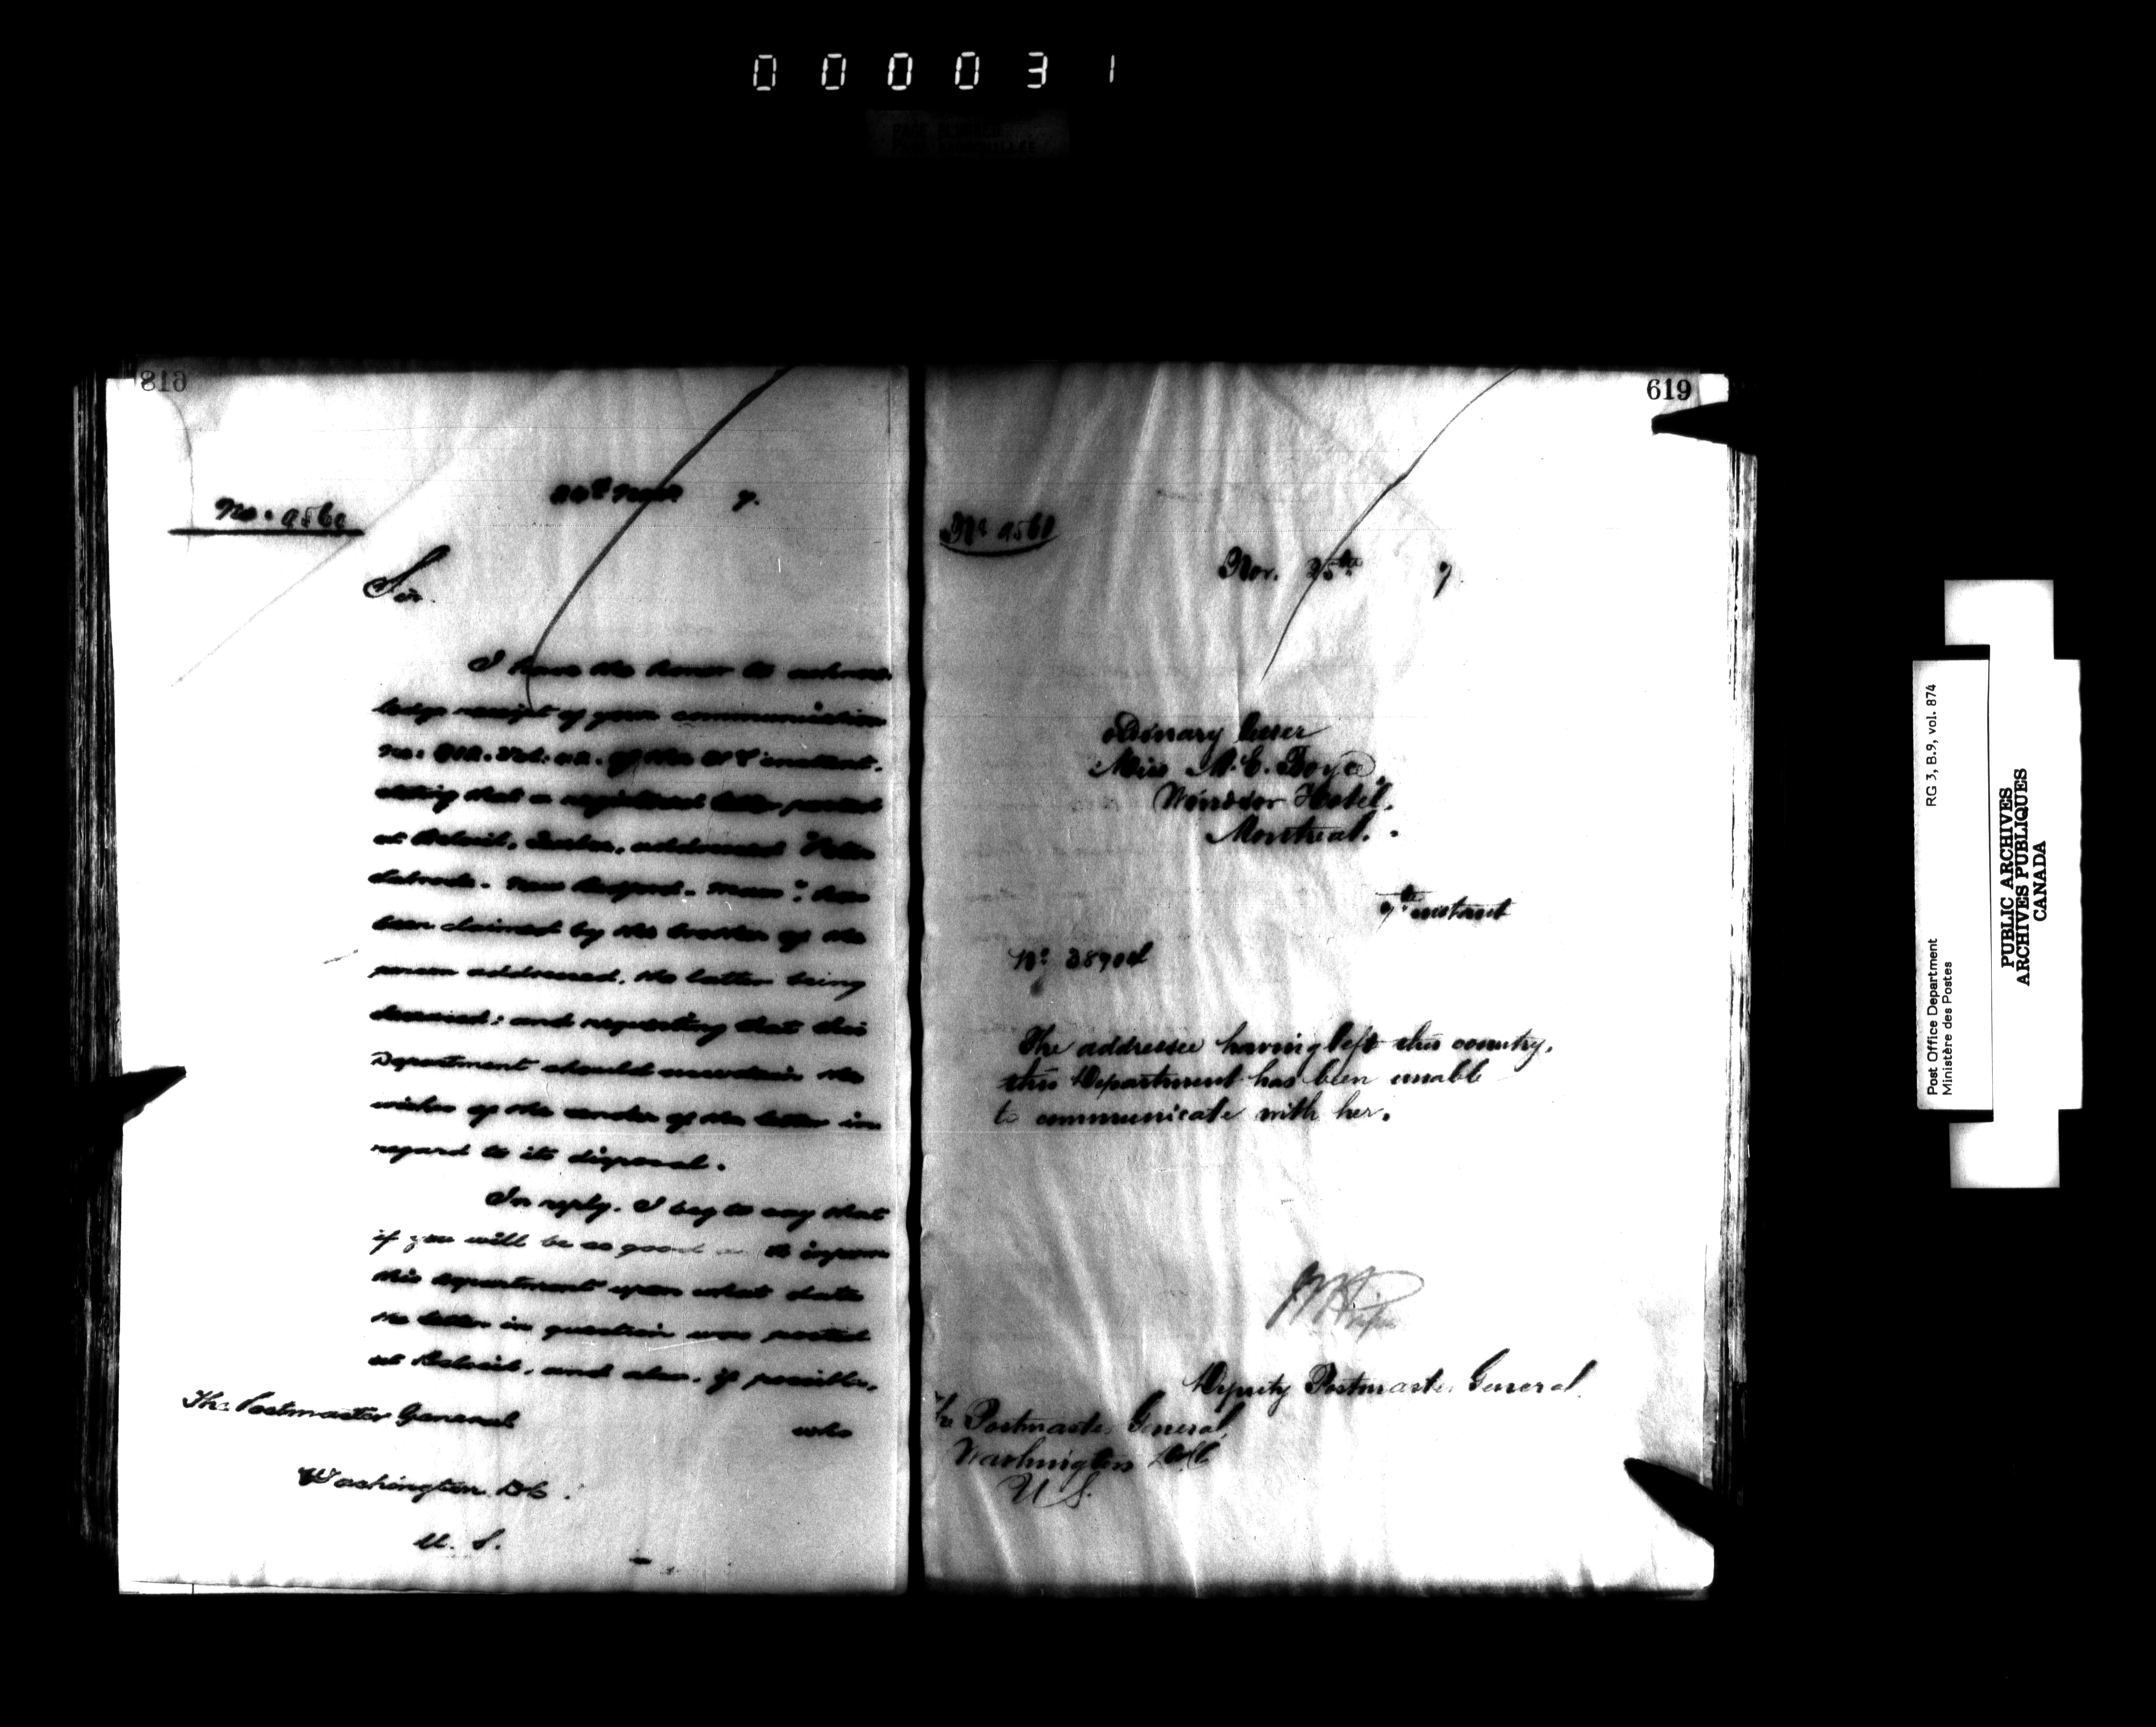 000031
618
No. 9560
24th Novr 7.
Sir.
I have the honor to acknow-
ledge receipt of your communication
No: of the instant.
stating that a registered letter posted
at Quebec, addressed
New Bedford. Mass: has
been claimed by the brother of the
person addressed, the latter being
deceased: and requesting that this
Department should ascertain the
wishes of the sender of the letter in
regard to its disposal.
In reply. I beg to say that
if you will be so good as to inform
this department upon what date
the letter in question was posted
at and also, if possible,
who
The Postmaster General
Washington. D.C.
U. S.
619
No 9561
Nov. 25th 7
Ordinary letter
Miss M. E. Boyce
Windsor Hotel.
Montreal.
7th instant
No 3890d
The addressee having left this country,
this Department has been unable
to communicate with her.
Deputy Postmaster General.
The Postmaster General,
Washington D.C.
U S.
Post Office Department RG 3, B.9, vol. 874
Ministère des Postes
PUBLIC ARCHIVES
ARCHIVES PUBLIQUES
CANADA